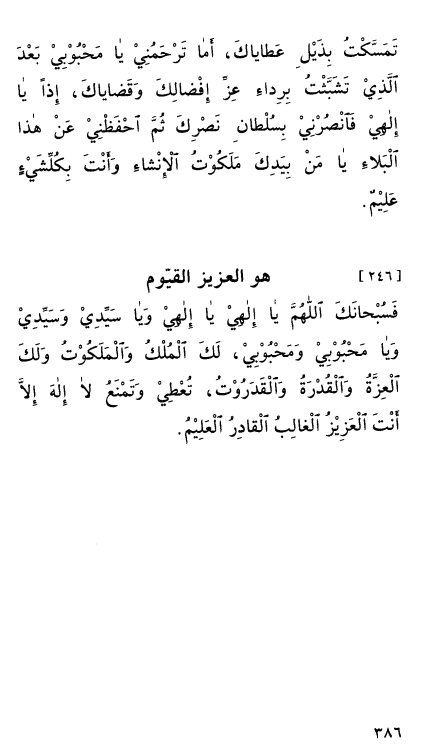 تَمَسَّكْتُ بِذَيْلِ عَطاياكَ، أَما تَرْحَمُنِيْ يا مَحْبُوْبِيْ بَعْدَ
ٱلَّذِيْ تَشَبَّثْتُ بِرِداءِ عِزِّ إِفْضالِكَ وَقَضاياكَ، إِذاً يا
إِلٰهِيْ فَٱنْصُرْنِيْ بِسُلْطانِ نَصْرِكَ ثُمَّ ٱحْفَظْنِيْ عَنْ هٰذا
ٱلْبَلاءِ يا مَنْ بِيَدِكَ مَلَكُوْتُ ٱلْإِنْشاءِ وَأَنْتَ بِكُلِّشَيْءٍ
عَلِيْمٌ.
[٢٤٦] هو العزيز القيّوم
فَسُبْحانَكَ ٱللّٰهُمَّ يا إِلٰهِيْ يا إِلٰهِيْ وَيا سَيِّدِيْ وَسَيِّدِيْ
وَيا مَحْبُوْبِيْ وَمَحْبُوْبِيْ، لَكَ ٱلْمُلْكُ وَٱلْمَلَكُوْتُ وَلَكَ
ٱلْعِزَّةُ وَٱلْقُدْرَةُ وَٱلْقَدَرُوْتُ، تُعْطِيْ وَتَمْنَعُ لا إِلٰهَ إِلاَّ
أَنْتَ ٱلْعَزِيْزُ ٱلْغالِبُ ٱلْقادِرُ ٱلْعَلِيْمُ.
٣٨٦